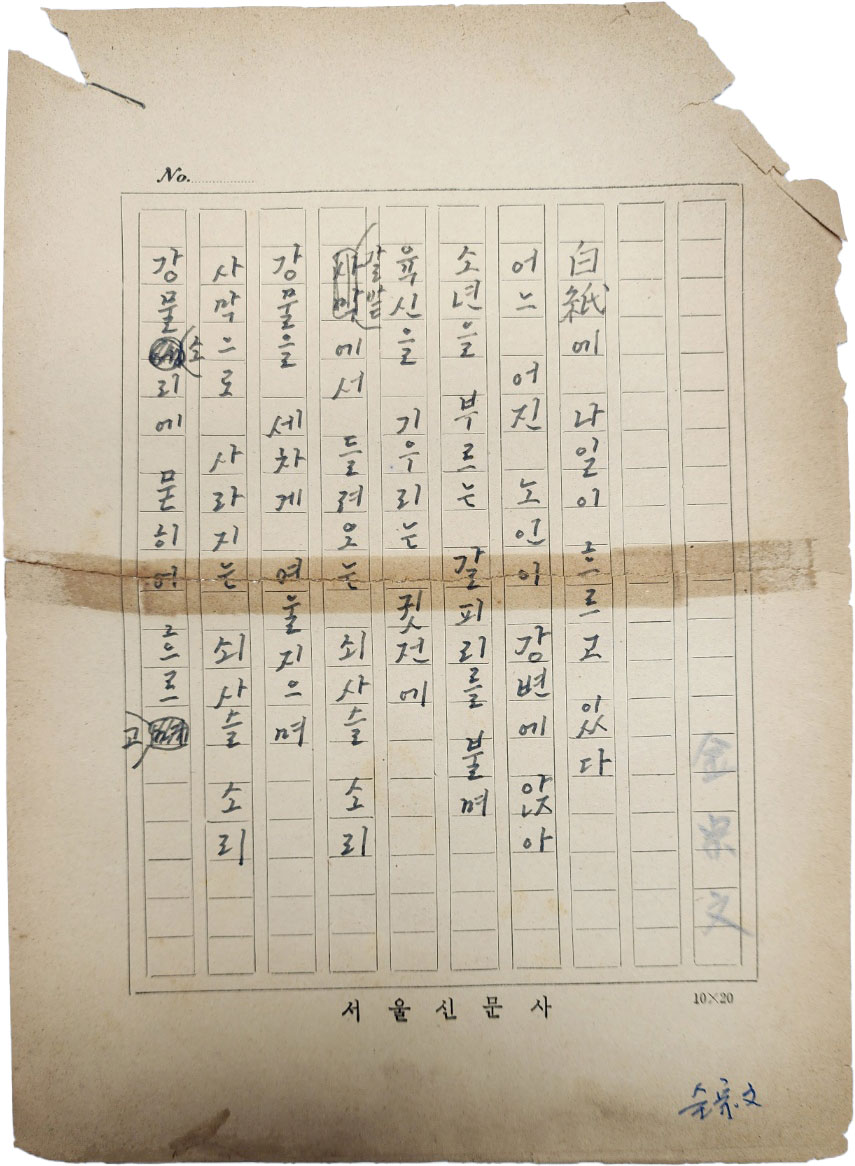 No.
金宗文
白紙에 나일이 흐르고 있다
어느 어진 노인이 강변에 앉아
소년을 부르는 갈피리를 불며
육신을 기우리는 귓전에
갈밭
사막에서 들려오는 쇠사슬 소리
강물을 세차게 여울지으며
사막으로 사라지는 쇠사슬 소리
강물소리에 묻히어 흐르고
서울신문사
10×20
金宗文